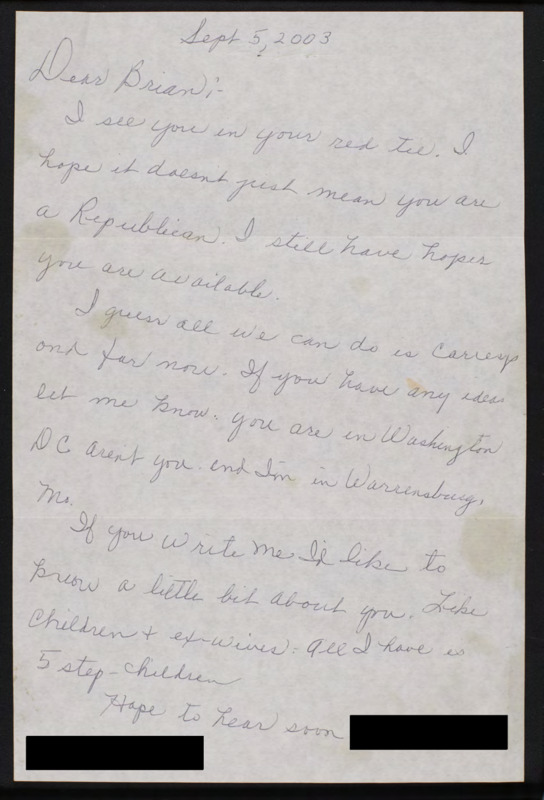 Sept 5, 2003
Dear Brian;-
I see you in your red tie. I
hope it doesnt just mean you are
a Republican. I still have hopes
you are available.
I guess all we can do is carry
ond for now. If you have any ideas
let me know. you are in Washington
DC arent you. and I'm in Warrensburg,
Mo.
If you write me I'd like to
know a little bit about you. Like
Children + ex-wives. All I have is
5 step-children
Hope to hear soon